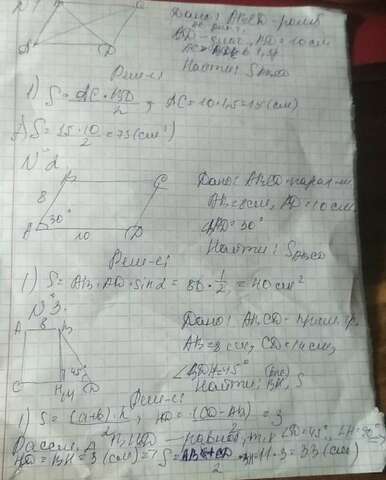 Дано: ABCD - ромб
BD = 10 см
Найти: SABCD
Реш-е:
1) S = AC · BD / 2, AC = 10 · 1,5 = 15 (см)
S = 15 · 10 / 2 = 75 (см²)
N 2.
B C
8
A 30° D
10
Дано: ABCD - парал-м,
AB = 8 см, AD = 10 см,
∠BAD = 30°
Найти: SABCD
Реш-е:
1) S = AB · AD · sin α = 80 · 1/2 = 40 см²
N 3.
A 8 B
45°
C H D
Дано: ABCD - прям. тр.
AB = 8 см, CD = 14 см,
= 45°
Найти: BH, S
Реш-е:
1) S = (a+b) · h / 2, HD = (CD - AB) / 2 = 3
Рассм. - равноб, т.к. = 45°, = 90°
HD = BH = 3 (см) => S = AB + CD / 2 · BH = 11 · 3 = 33 (см)